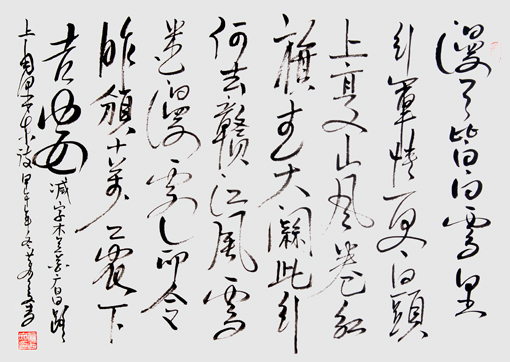 漫天皆白雪里
行軍情更迫頭
上高山風卷紅
旗過大關此行
何去贛江風雪
迷漫處命令
昨頒十萬工農下
吉安
减字木蘭花廣昌路
上